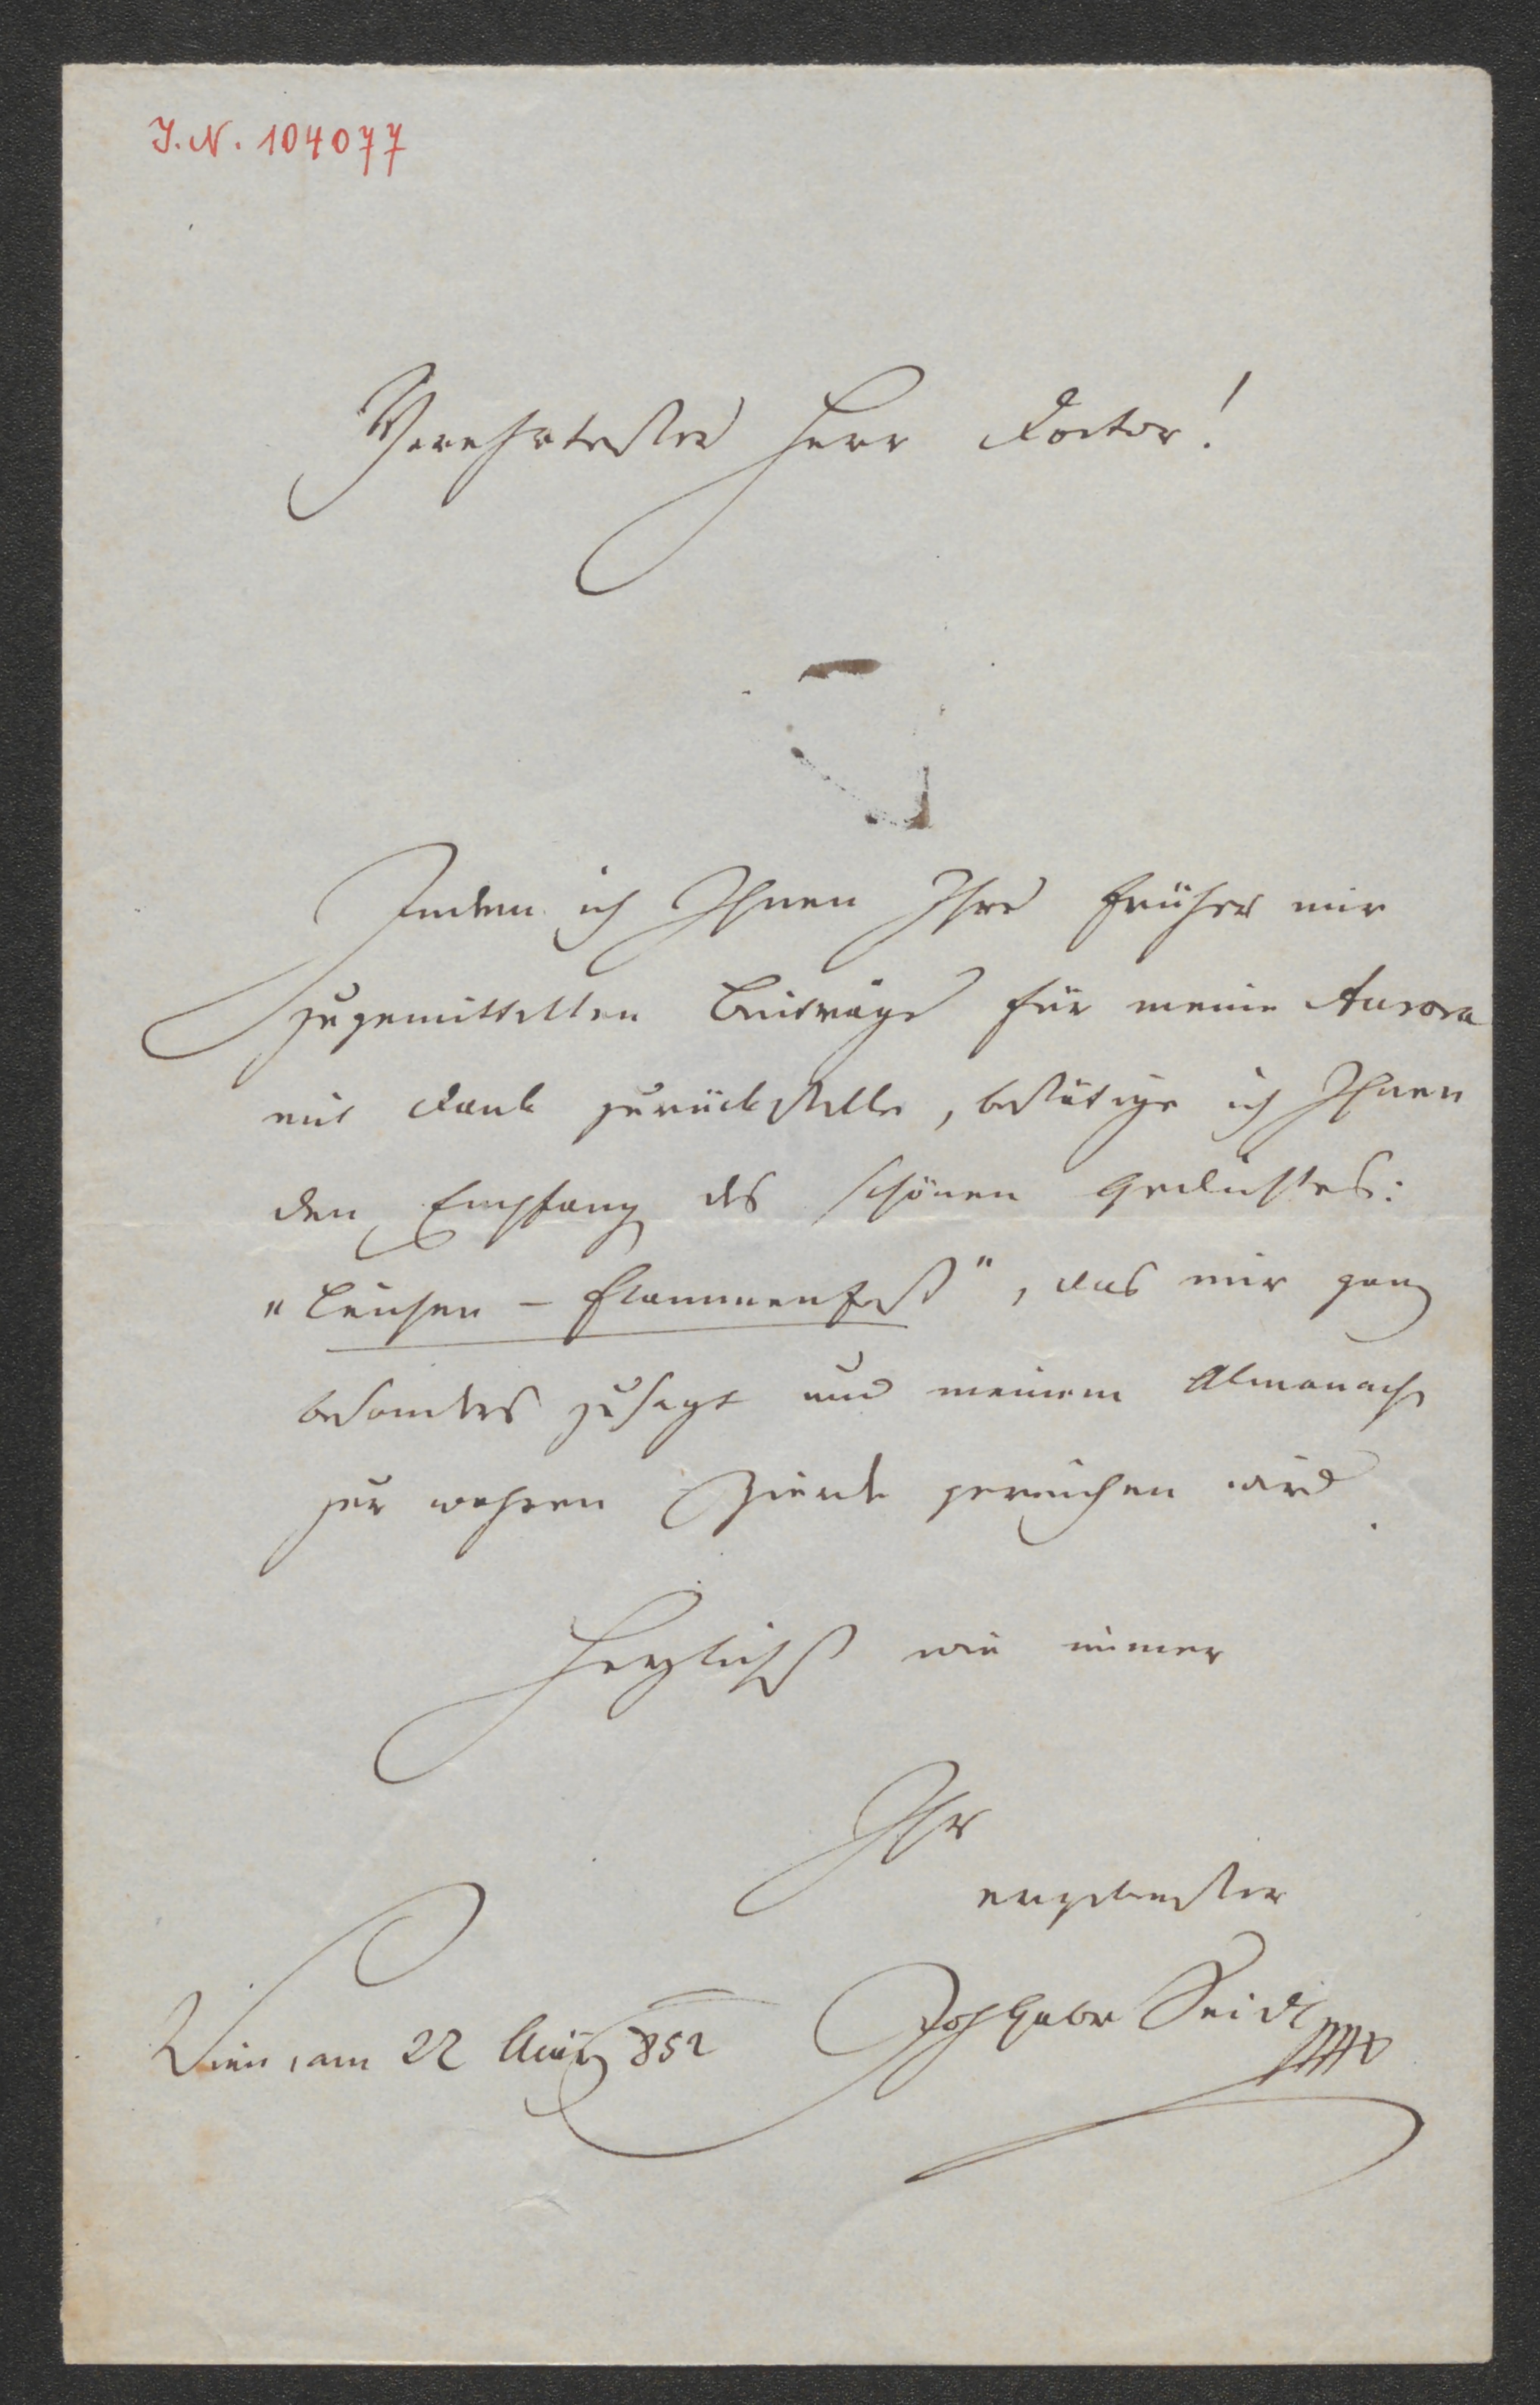 I.N. 104077
Verehrtester Herr Doctor!
Indem ich Ihnen Ihre früher mir
zugemittelten Beiträge für meine Aurora
mit Dank zurückstelle, bestätige ich Ihnen
den Empfang des schönen Gedichtes:
"Leichen-Flammenfest", das mir ganz
besonders zusagt und meinem Almanach
zur wahren Zierde gereichen wird.
Herzlichst wie immer
Ihr
ergebenster
Wien, am 22 Aug 852 Joh Gabr Seidl